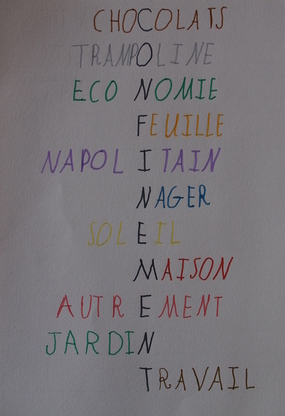 CHOCOLATS
TRAMPOLINE
ECONOMIE
FEUILLE
NAPOLITAIN
NAGER
SOLEIL
MAISON
AUTREMENT
JARDIN
TRAVAIL